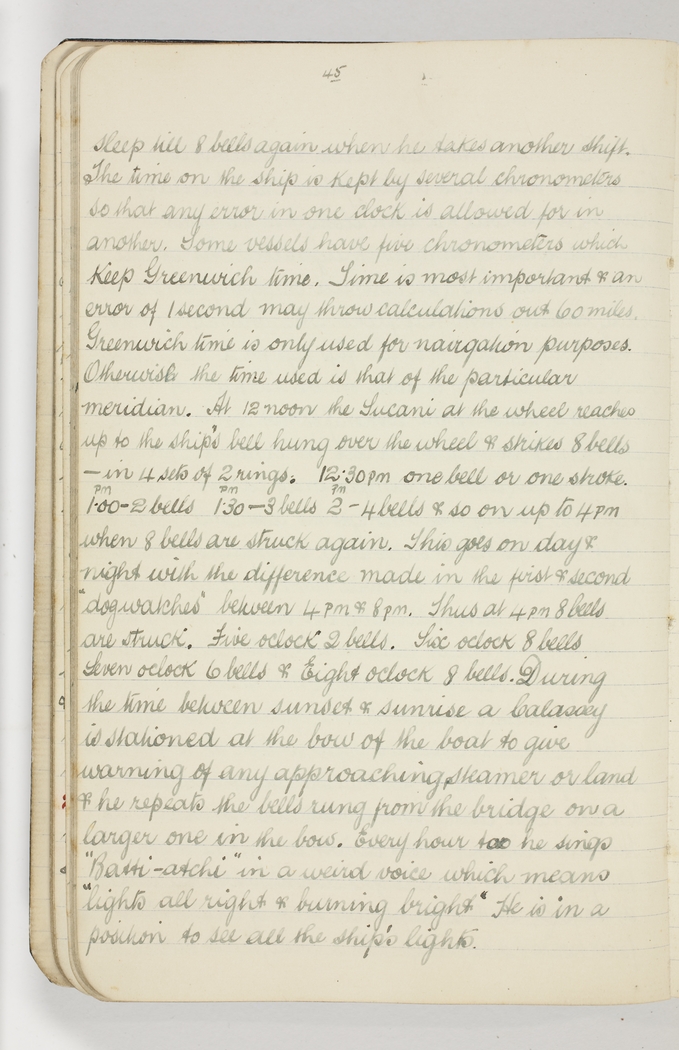 45
sleep till 8 bells again when he takes another shift.
The time on the ship is kept by several chronometers
so that any error in one clock is allowed for in
another. Some vessels have five chronometers which
keep Greenwich time. Time is most important & an
error of 1 second may throw calculations out 60 miles.
Greenwich time is only used for nairgation purposes.
Otherwise the time used is that of the particular
meridian. At 12 noon the Sucani at the wheel reaches
up to the ship's bell hung over the wheel & strikes 8 bells
— in 4 sets of 2 rings. 12.30 pm one bell or one stroke.
pm pm pm
1.00-2 bells 1.30-3 bells 2-4 bells & so on up to 4 pm
when 8 bells are struck again. This goes on day &
night with the difference made in the first & second
"dogwatches" between 4 pm & 8 pm. Thus at 4 pm 8 bells
are struck. Five oclock 2 bells. Six oclock 8 bells
Seven oclock 6 bells & Eight oclock 8 bells. During
the time between sunset & sunrise a
is stationed at the bow of the boat to give
warning of any approaching steamer or land
& he repeats the bells rung from the bridge on a
larger one in the bow. Every hour he sings
"Batti-atchi" in a weird voice which means
"lights all right & burning bright" He is in a
position to see all the ship's lights.